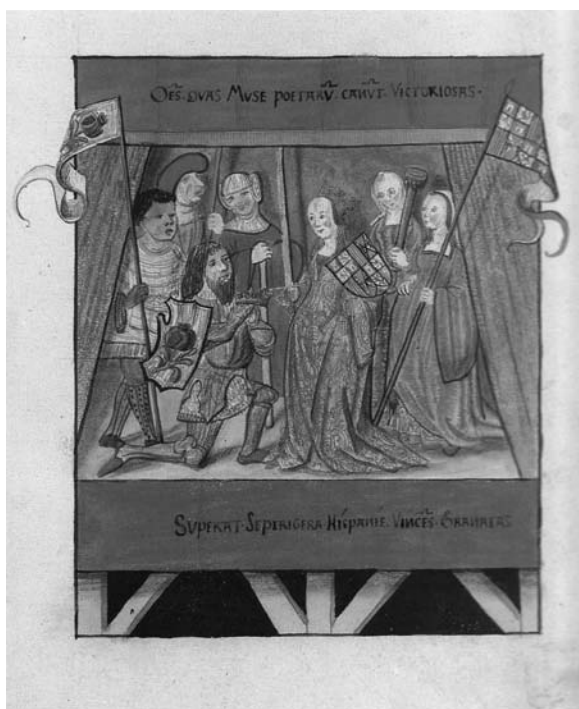 Oẽs · QVAS MVSE POETARṼ · CANṼT · VICTORIOSAS ·
SVPERAT · SEPTRIGERA · HISPANIE · VINCẼS · GRANATAS